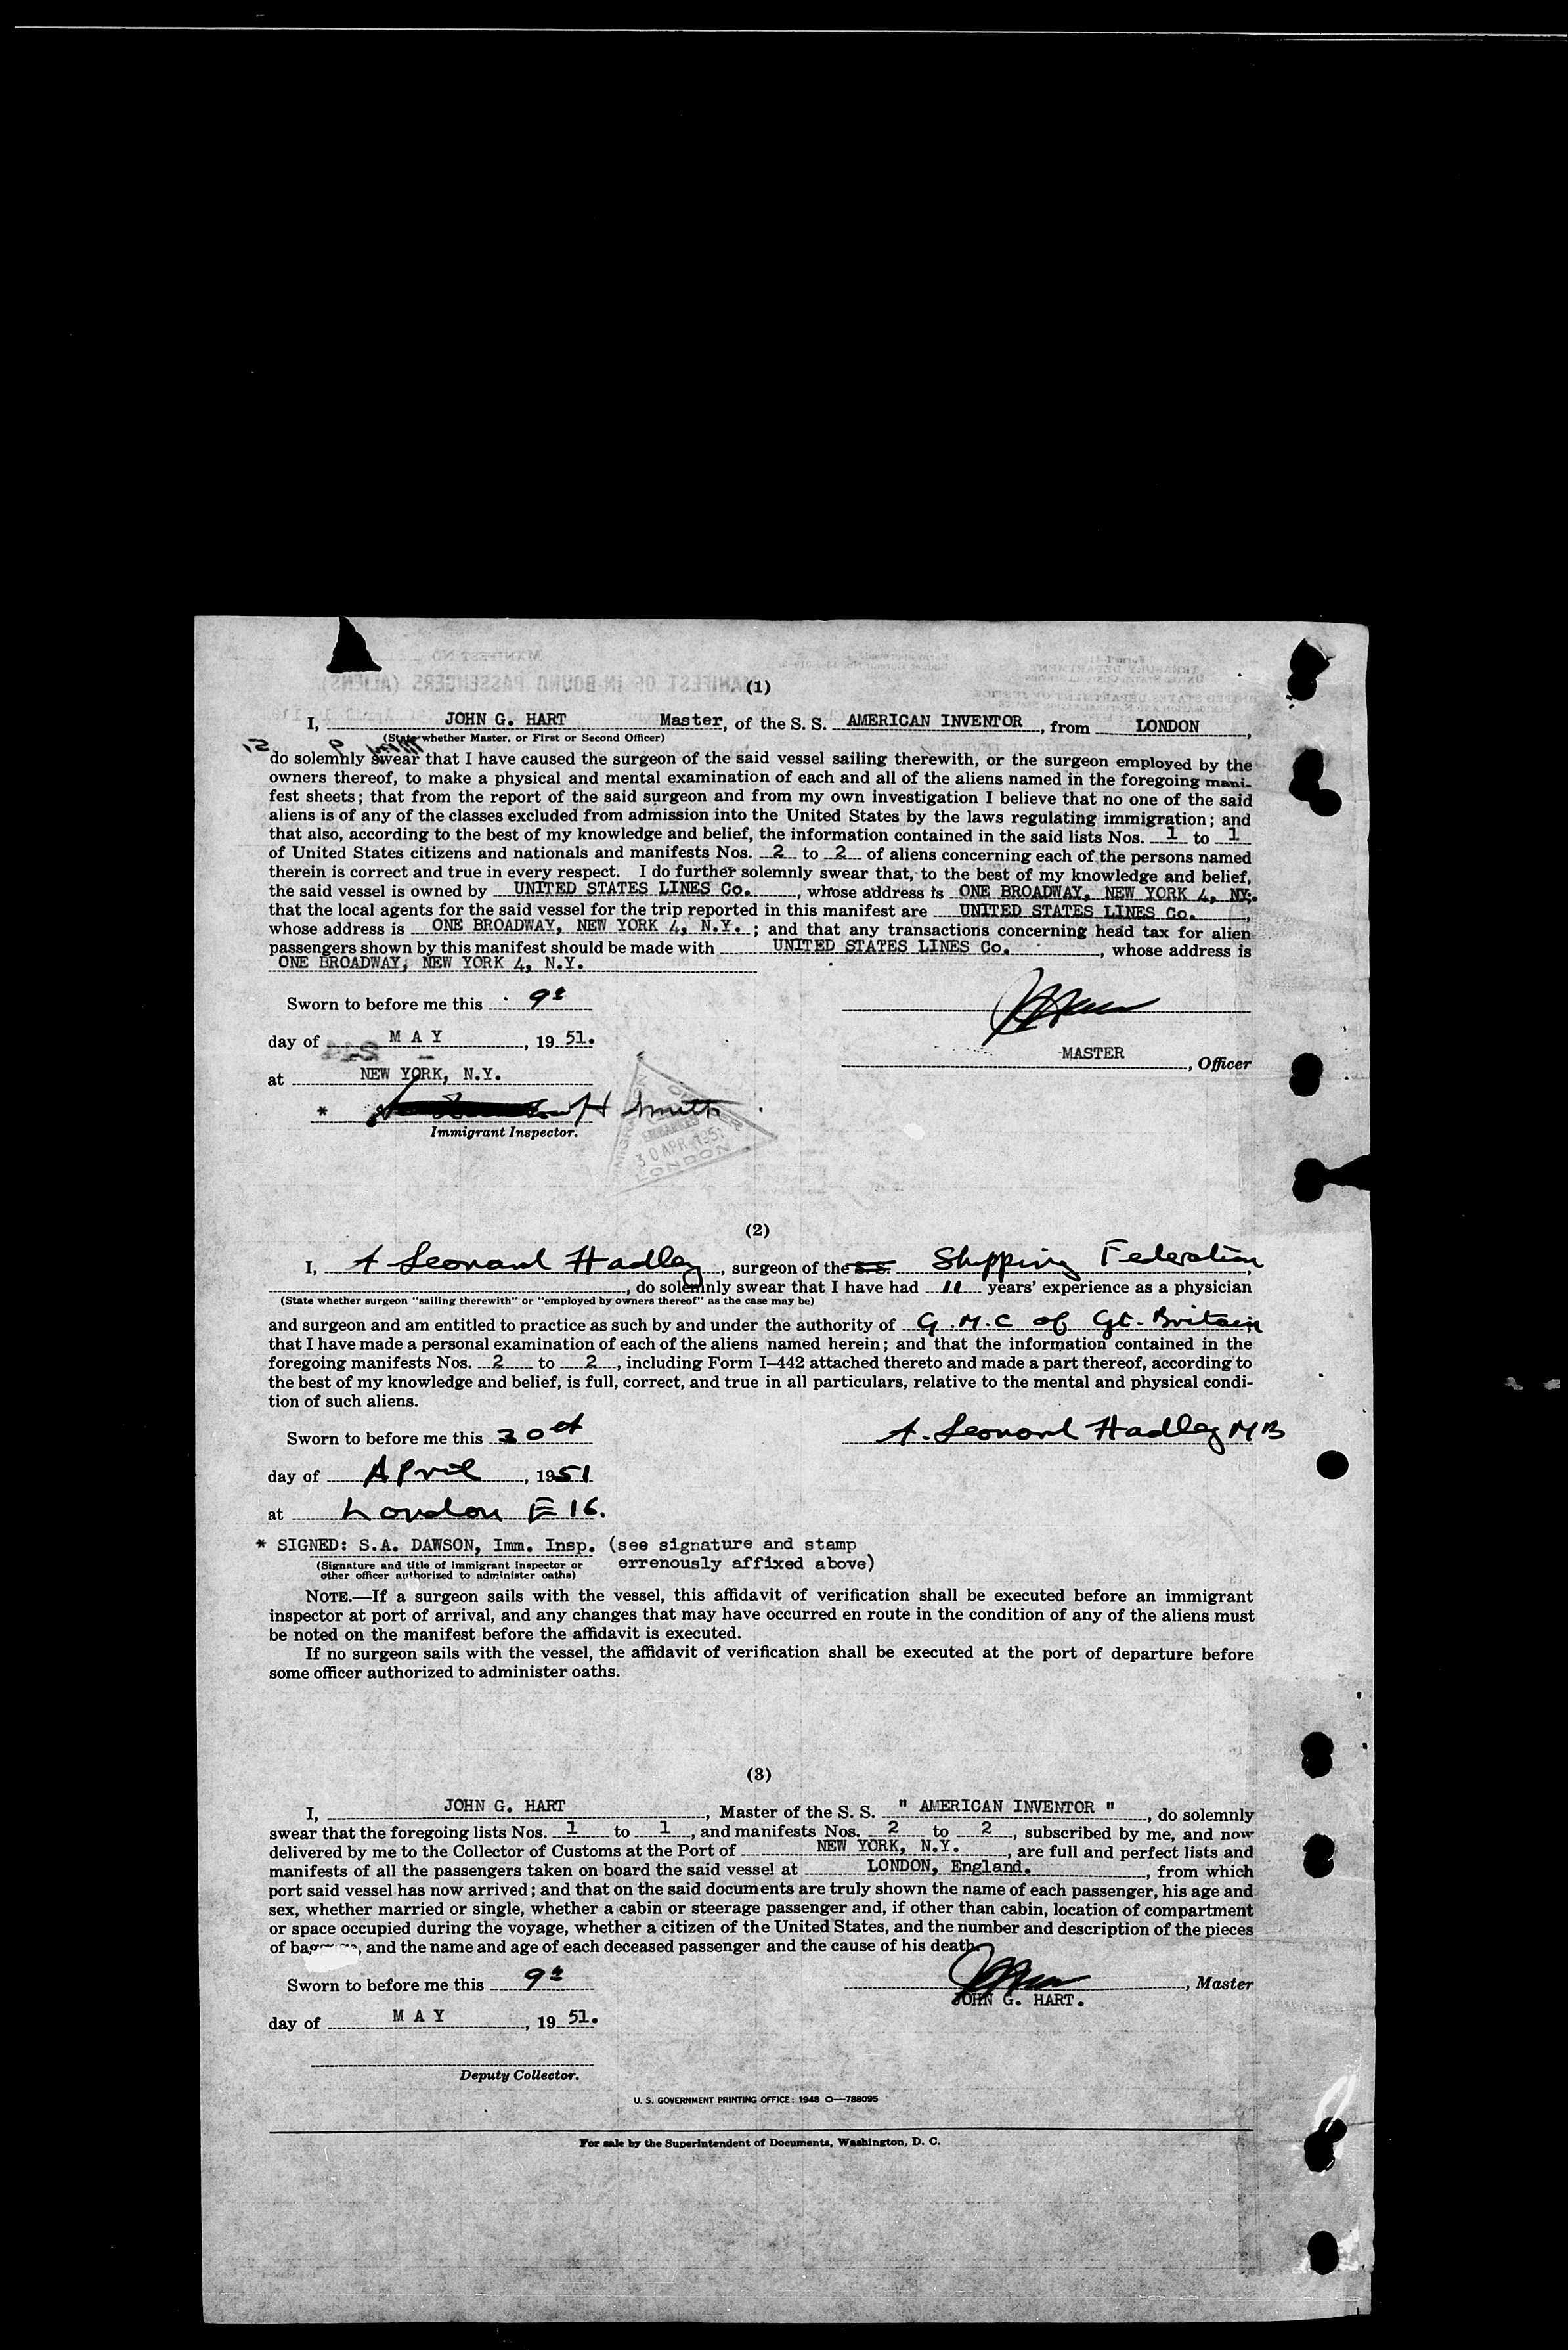 (1)
I, JOHN G. HART Master, of the S. S. AMERICAN INVENTOR, from LONDON,
(State whether Master, or First or Second Officer)
do solemnly swear that I have caused the surgeon of the said vessel sailing therewith, or the surgeon employed by the
owners thereof, to make a physical and mental examination of each and all of the aliens named in the foregoing mani-
fest sheets; that from the report of the said surgeon and from my own investigation I believe that no one of the said
aliens is of any of the classes excluded from admission into the United States by the laws regulating immigration; and
that also, according to the best of my knowledge and belief, the information contained in the said lists Nos. 1 to 1
of United States citizens and nationals and manifests Nos. 2 to 2 of aliens concerning each of the persons named
therein is correct and true in every respect. I do further solemnly swear that, to the best of my knowledge and belief,
the said vessel is owned by UNITED STATES LINES Co., whose address is ONE BROADWAY, NEW YORK 4, NY.
that the local agents for the said vessel for the trip reported in this manifest are UNITED STATES LINES Co.,
whose address is ONE BROADWAY, NEW YORK 4, N.Y.; and that any transactions concerning head tax for alien
passengers shown by this manifest should be made with UNITED STATES LINES Co., whose address is
ONE BROADWAY, NEW YORK 4, N.Y.
Sworn to before me this 9th
day of MAY, 1951.
MASTER, Officer
at NEW YORK, N.Y.
* H Smith
Immigrant Inspector.
IMMIGRATION OFFICER
EMBARKED
30 APR 1951
LONDON
(2)
I, A Leonard Hadley, surgeon of the S.S. Shipping Federation,
, do solemnly swear that I have had 11 years' experience as a physician
(State whether surgeon "sailing therewith" or "employed by owners thereof" as the case may be)
and surgeon and am entitled to practice as such by and under the authority of G.M.C of Gt. Britain
that I have made a personal examination of each of the aliens named herein; and that the information contained in the
foregoing manifests Nos. 2 to 2, including Form I-442 attached thereto and made a part thereof, according to
the best of my knowledge and belief, is full, correct, and true in all particulars, relative to the mental and physical condi-
tion of such aliens.
Sworn to before me this 30th
A. Leonard Hadley MB
day of April, 1951
at London E 16.
* SIGNED: S.A. DAWSON, Imm. Insp. (see signature and stamp
errenously affixed above)
(Signature and title of immigrant inspector or
other officer authorized to administer oaths)
NOTE.—If a surgeon sails with the vessel, this affidavit of verification shall be executed before an immigrant
inspector at port of arrival, and any changes that may have occurred en route in the condition of any of the aliens must
be noted on the manifest before the affidavit is executed.
If no surgeon sails with the vessel, the affidavit of verification shall be executed at the port of departure before
some officer authorized to administer oaths.
(3)
I, JOHN G. HART, Master of the S. S. " AMERICAN INVENTOR ", do solemnly
swear that the foregoing lists Nos. 1 to 1, and manifests Nos. 2 to 2, subscribed by me, and now
delivered by me to the Collector of Customs at the Port of NEW YORK, N.Y., are full and perfect lists and
manifests of all the passengers taken on board the said vessel at LONDON, England., from which
port said vessel has now arrived; and that on the said documents are truly shown the name of each passenger, his age and
sex, whether married or single, whether a cabin or steerage passenger and, if other than cabin, location of compartment
or space occupied during the voyage, whether a citizen of the United States, and the number and description of the pieces
of baggage, and the name and age of each deceased passenger and the cause of his death.
Sworn to before me this 9th
, Master
JOHN G. HART.
day of MAY, 1951.
Deputy Collector.
U. S. GOVERNMENT PRINTING OFFICE: 1948 O—788095
For sale by the Superintendent of Documents, Washington, D. C.